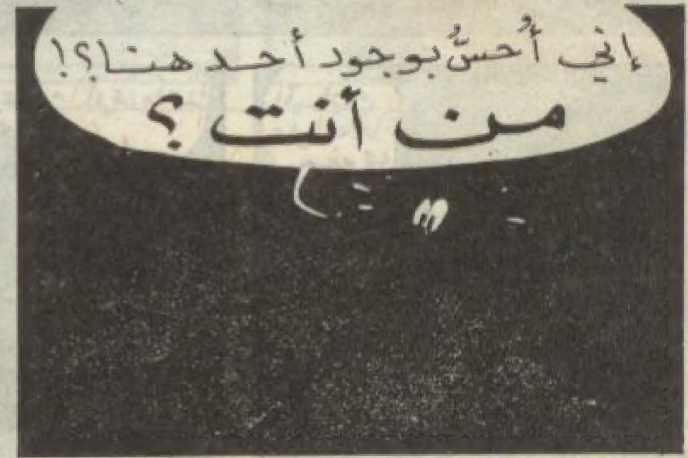 إني أُحسُّ بوجود أحد هنا؟!
من أنت ؟